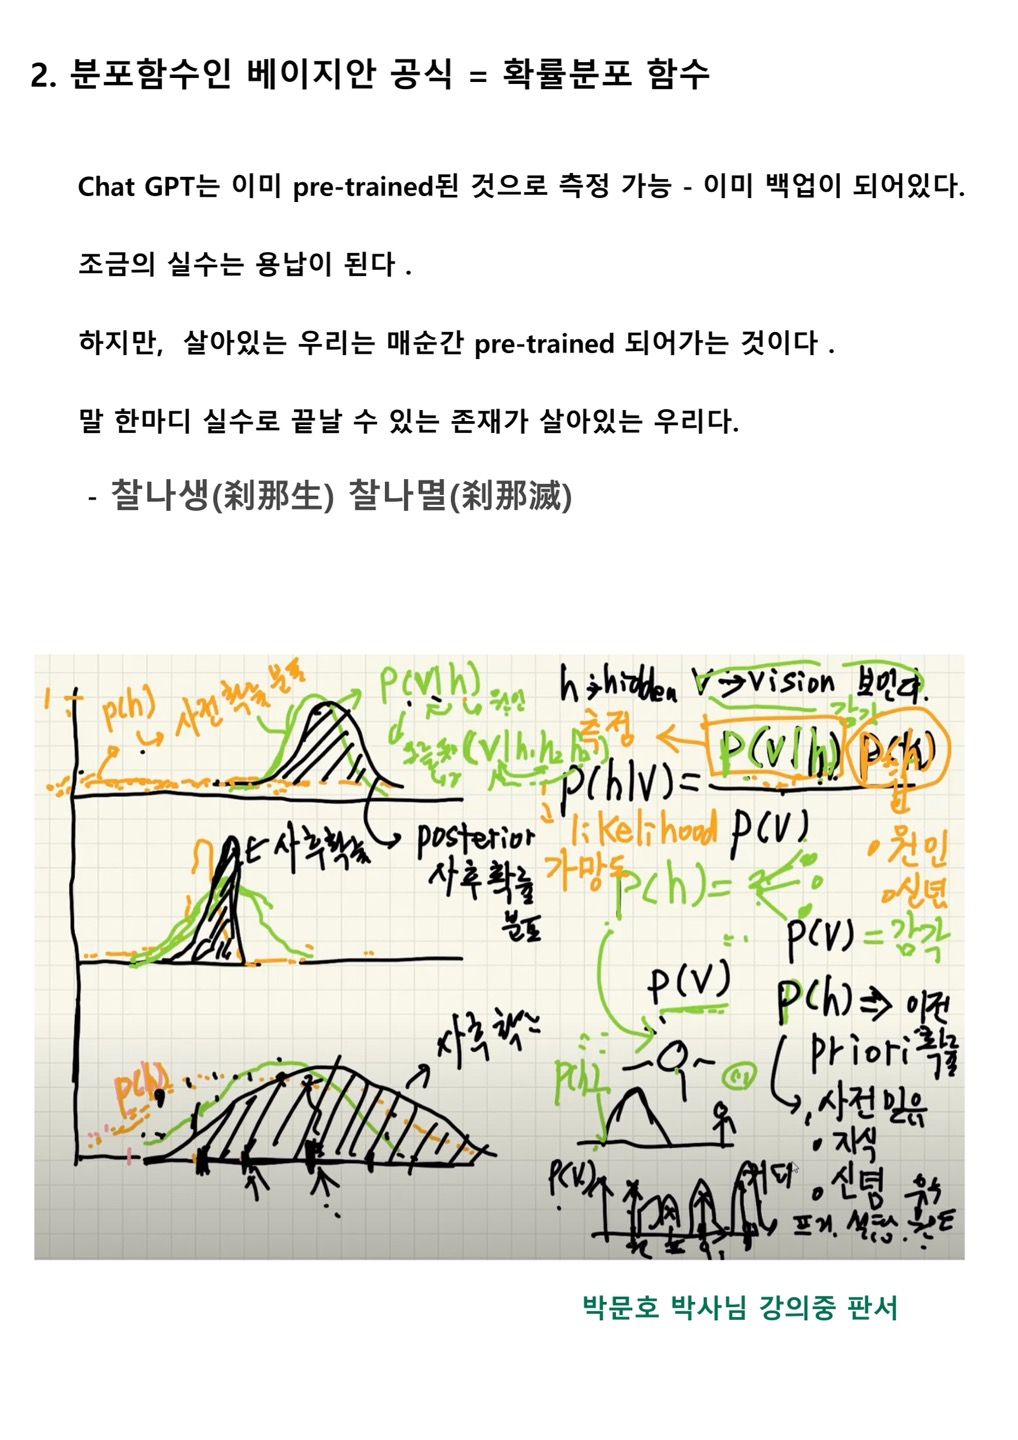 2. 분포함수인 베이지안 공식 = 확률분포 함수
Chat GPT는 이미 pre-trained된 것으로 측정 가능 - 이미 백업이 되어있다.
조금의 실수는 용납이 된다 .
하지만, 살아있는 우리는 매순간 pre-trained 되어가는 것이다 .
말 한마디 실수로 끝날 수 있는 존재가 살아있는 우리다.
- 찰나생(刹那生) 찰나멸(刹那滅)
1
p(h)
사전 확률 분포
P(V|h)
원인
h → hidden V → Vision 보인다.
감각
측정
P(V|h) P(h)
P(h|V) =
likelihood
P(V)
가망도
• 원인
• 신념
E 사후확률
posterior
사후 확률
분포
P(h) =
P(V) = 감각
P(V)
P(h) ⇒ 이전
priori 확률
사후 확률
P(h)
P(h)
• 사전 믿음
• 지식
• 신념
P(V)
박문호 박사님 강의중 판서